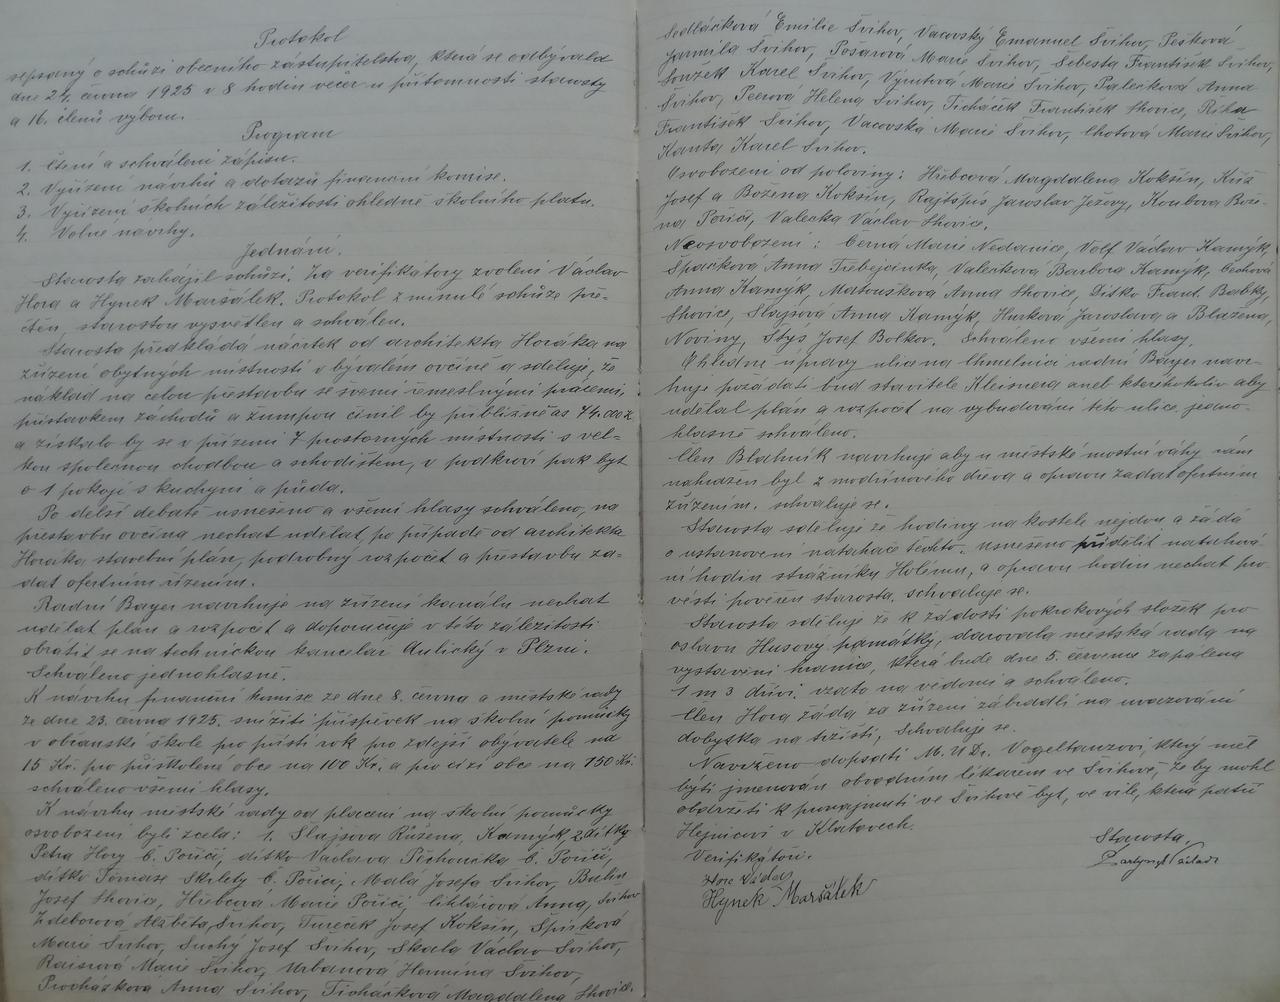 Protokol
sepsaný o schůzi obecního zastupitelstva, která se odbývala
dne 24. června 1925 v 8 hodin večer u přítomnosti starosty
a 16. členů výboru.
Program
1. Čtení a schválení zápisu.
2. Vyřízení návrhů a dotazů finanční komise.
3. Vyřízení školních záležitostí ohledně školního platu.
4. Volné návrhy.
Jednání.
Starosta zahájil schůzi. Za verifikátory zvoleni Václav
Hora a Hynek Maršálek. Protokol z minulé schůze pře-
čten, starostou vysvětlen a schválen.
Starosta předkládá náčrtek od architekta Horáka na
zřízení obytných místností v bývalém ovčíně a sděluje, že
náklad na celou přestavbu se všemi řemeslnými pracemi,
přístavkem záchodů a žumpou činil by přibližně as
a získalo by se v přízemí 7 prostorných místností s vel-
kou společnou chodbou a schodištěm, v podkroví pak byt
o 1 pokoji s kuchyní a půda.
Po delší debatě usnešeno a všemi hlasy schváleno, na
přestavbu ovčína nechat udělat, po případě od architekta
Horáka stavební plán, podrobný rozpočet a přestavbu za-
dat ofertním řízením.
Radní Bayer navrhuje na zřízení kanálu nechat
udělat plán a rozpočet a doporučuje v této záležitosti
obrátit se na technickou kancelář Aulický v Plzni.
Schváleno jednohlasně.
K návrhu finanční komise ze dne 8. června a městské rady
ze dne 23. června 1925. snížiti příspěvek na školní pomůcky
v občanské škole pro příští rok pro zdejší obyvatele na
15 Kč. pro přiškolené obce na 100 Kč. a pro cizí obce na 150 Kč.
schváleno všemi hlasy.
K návrhu městské rady od placení na školní pomůcky
osvobozeni byli zcela: 1. Šlajsova Růžena, Kamýk, 2 dítky
Petra Hory č. Poříčí, dítko Václava Pchoučka č. Poříčí,
dítko Tomáše Skřlety č. Poříčí, Malá Josefa Švihov, Bulín
Josef Lhovice, Hřebcova Marie Poříčí, Anna, Švihov
Zdeborová Alžběta, Švihov, Tureček Josef Kokšín, Špirková
Marie Švihov, Suchý Josef Švihov, Skala Václav Švihov,
Raisrová Marie Švihov, Urbanová Hermína Švihov,
Procházková Anna Švihov, Ticháčková Magdaléna Lhovice.
Sedláčková Emilie Švihov, Vacovský Emanuel Švihov, Pešková
Jarmila Švihov, Pošarová Marie Švihov, Šebesta František Švihov,
Soužek Karel Švihov, Výrutová Marie Švihov, Palečková Anna
Švihov, Peerová Helena Švihov, Ticháček František Lhovice, Říha
František Švihov, Vacovská Marie Švihov, Chotová Marie Švihov,
Kanta Karel Švihov.
Osvobozeni od poloviny: Hřebcová Magdalena Kokšín, Kříž
Josef a Božena Kokšín, Rajtšpís Jaroslav Jezovy, Koubova Bože-
na Poříčí, Valečka Václav Lhovice.
Neosvobozeni: Černá Marie Nedanice, Volf Václav Kamýk,
Špačková Anna Třebejčinka, Valečková Barbora Kamýk, Čechová
Anna Kamýk, Matoušková Anna Lhovice, Dítko Frant. Babky,
Lhovice, Šlajsova Anna Kamýk, Hurková Jaroslava a Blažena,
Noviny, Stýs Josef Bolkov. Schváleno všemi hlasy.
Ohledně úpravy ulice na Chmelnici radní Bayer navr-
huje požádati buď stavitele Kleisnera aneb kteréhokoliv aby
udělal plán a rozpočet na vybudování této ulice, jedno-
hlasně schváleno.
Člen Blahník navrhuje aby u městské mostní váhy rám
nahrazen byl z modřínového dřeva a opravu zadat ofertním
řízením. schvaluje se.
Starosta sděluje že hodiny na kostele nejdou a žádá
o ustanovení natahače těchto. Usnešeno přidělit natahová-
ní hodin strážníku Holému, a opravu hodin nechat pro-
vésti pověřen starosta, schvaluje se.
Starosta sděluje že k žádosti pokrokových složek pro
oslavu Husovy památky, darovala městská rada na
vystavení hranice, která bude dne 5. července zapálena
1 m 3 dříví. vzato na vědomí a schváleno.
Člen Hora žádá za zřízení zábradlí na uvazování
dobytka na tržišti, Schvaluje se.
Navrženo dopsati M.U.Dr. Vogeltanzovi, který měl
býti jmenován obvodním lékařem ve Švihově, že by mohl
obdržeti k pronajmutí ve Švihově byt, ve vile, která patří
Hejnicovi v Klatovech.
Verifikátoři. Starosta,
Hora Václav
Hynek Maršálek